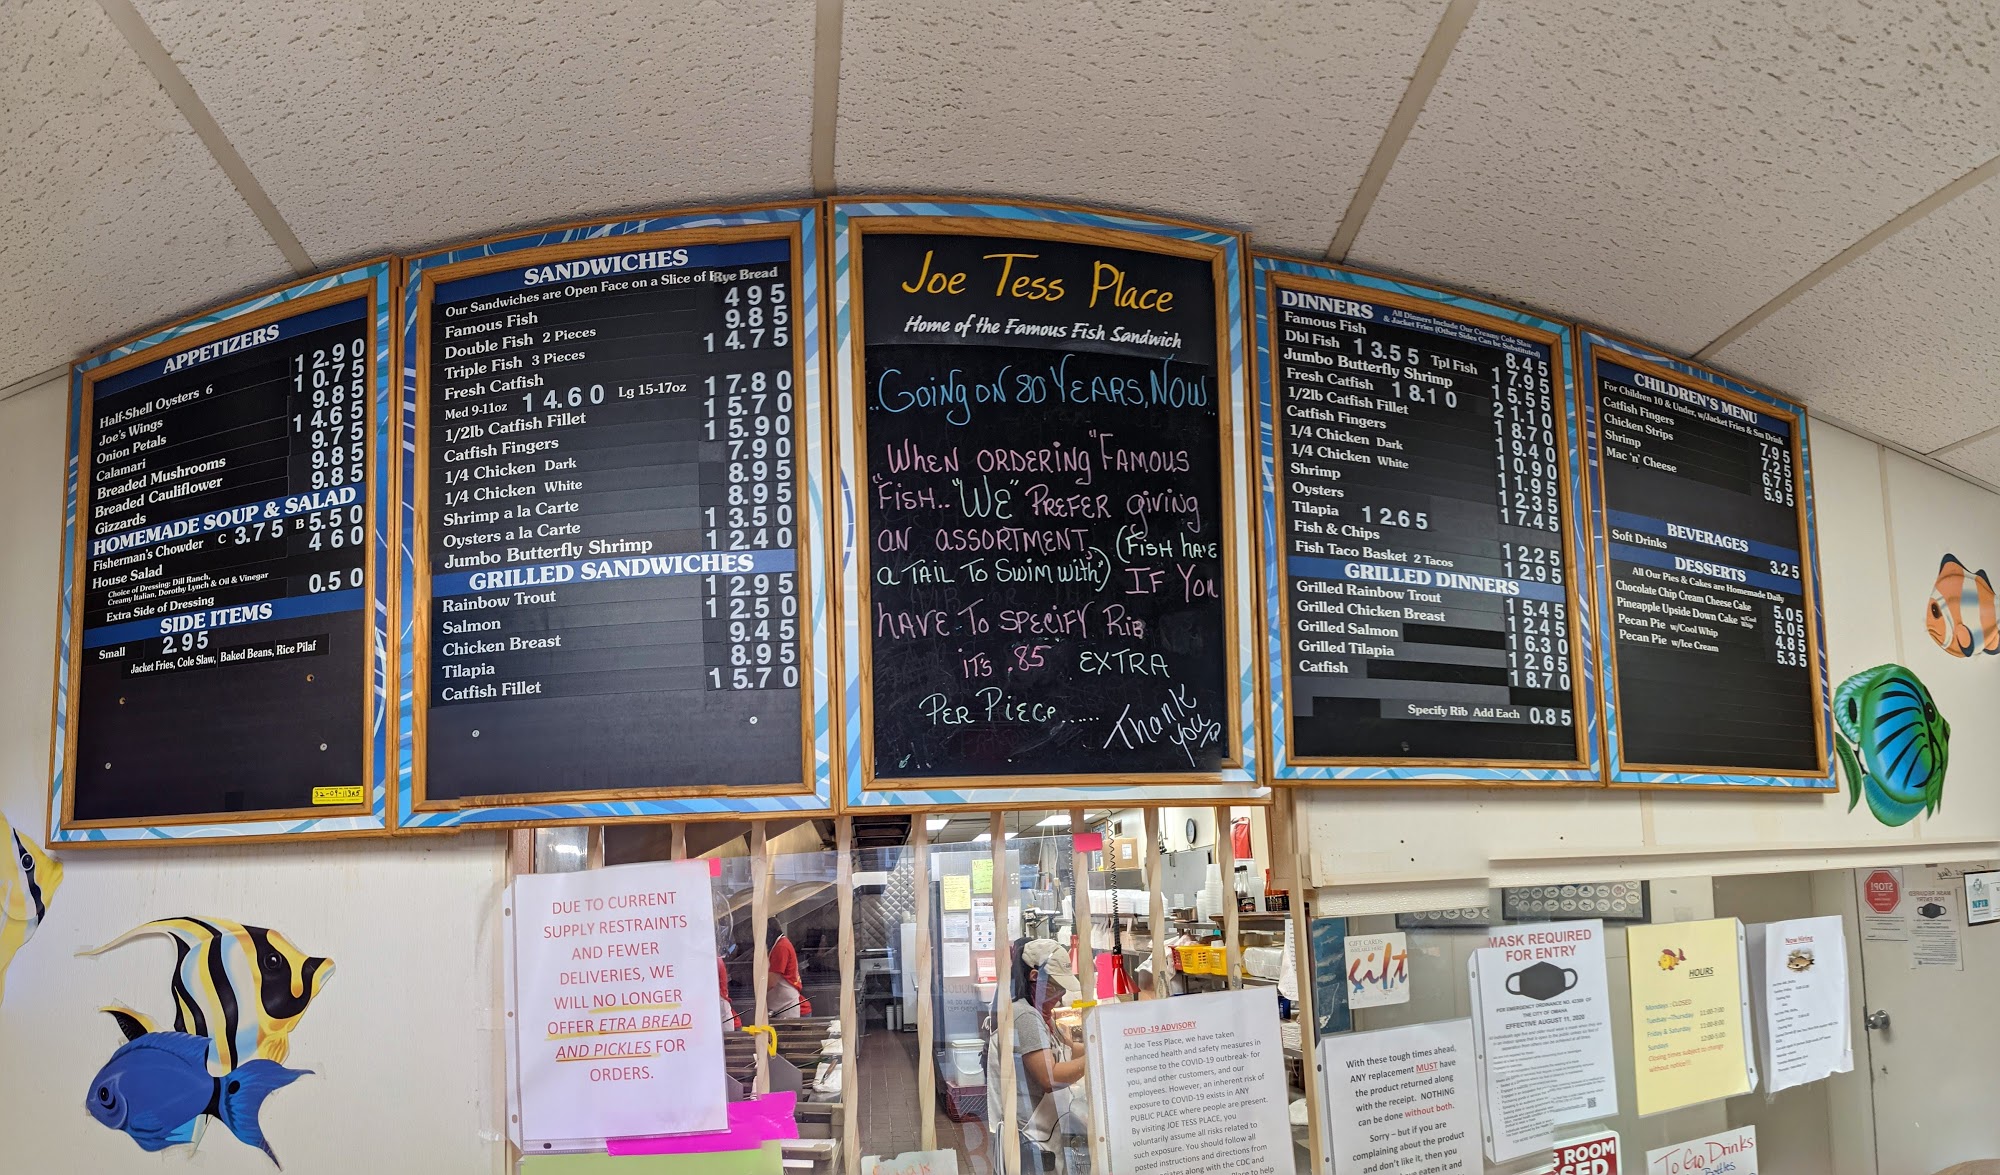 APPETIZERS
Half-Shell Oysters 6 12.90
Joe's Wings 10.75
Onion Petals 9.85
Calamari 14.65
Breaded Mushrooms 9.75
Breaded Cauliflower 9.85
Gizzards 9.85
HOMEMADE SOUP & SALAD
Fisherman's Chowder C 3.75 B 5.50
House Salad 4 60
Choice of Dressing: Dill Ranch,
Creamy Italian, Dorothy Lynch & Oil & Vinegar
Extra Side of Dressing 0.50
SIDE ITEMS
Small 2.95
Jacket Fries, Cole Slaw, Baked Beans, Rice Pilaf
SANDWICHES
Our Sandwiches are Open Face on a Slice of Rye Bread
Famous Fish 4 95
Double Fish 2 Pieces 9.85
Triple Fish 3 Pieces 14.75
Fresh Catfish
Med 9-11oz 14.60 Lg 15-17oz 17.80
1/2lb Catfish Fillet 15.70
Catfish Fingers 15.90
1/4 Chicken Dark 7.90
1/4 Chicken White 8.95
Shrimp a la Carte 8.95
Oysters a la Carte 13.50
Jumbo Butterfly Shrimp 12.40
GRILLED SANDWICHES
Rainbow Trout 12.95
Salmon 12.50
Chicken Breast 9.45
Tilapia 8.95
Catfish Fillet 15.70
Joe Tess Place
Home of the Famous Fish Sandwich
..Going on 80 Years, Now..
"When ordering "Famous
Fish.. "We" Prefer giving
an assortment, (Fish have
a tail to swim with") If you
have to specify Rib
it's .85 extra
Per Piece......
Thank you
DINNERS
All Dinners Include Our Creamy Cole Slaw
& Jacket Fries (Other Sides Can be Substituted)
Famous Fish 8.45
Dbl Fish 13.55 Tpl Fish 17.95
Jumbo Butterfly Shrimp 15.55
Fresh Catfish 18.10 21.10
1/2lb Catfish Fillet 18.70
Catfish Fingers 19.40
1/4 Chicken Dark 10.90
1/4 Chicken White 11.95
Shrimp 12.35
Oysters 17.45
Tilapia 12.65
Fish & Chips 12.25
Fish Taco Basket 2 Tacos 12.95
GRILLED DINNERS
Grilled Rainbow Trout 15.45
Grilled Chicken Breast 12.45
Grilled Salmon 16.30
Grilled Tilapia 12.65
Catfish 18.70
Specify Rib Add Each 0.85
CHILDREN'S MENU
For Children 10 & Under, w/Jacket Fries & Sm Drink
Catfish Fingers 7.95
Chicken Strips 7.25
Shrimp 6.75
Mac 'n' Cheese 5.95
BEVERAGES
Soft Drinks 3.25
DESSERTS
All Our Pies & Cakes are Homemade Daily
Chocolate Chip Cream Cheese Cake 5.05
Pineapple Upside Down Cake w/Cool Whip 5.05
Pecan Pie w/Cool Whip 4.85
Pecan Pie w/Ice Cream 5.35
DUE TO CURRENT
SUPPLY RESTRAINTS
AND FEWER
DELIVERIES, WE
WILL NO LONGER
OFFER ETRA BREAD
AND PICKLES FOR
ORDERS.
COVID -19 ADVISORY
At Joe Tess Place, we have taken
enhanced health and safety measures in
response to the COVID-19 outbreak- for
you, and other customers, and our
employees. However, an inherent risk of
exposure to COVID-19 exists in ANY
PUBLIC PLACE where people are present.
By visiting JOE TESS PLACE, you
voluntarily assume all risks related to
such exposure. You should follow all
posted instructions and directions from
along with the CDC and
to help
GIFT CARDS
gift
With these tough times ahead,
ANY replacement MUST have
the product returned along
with the receipt. NOTHING
can be done without both.
Sorry – but if you are
complaining about the product
and don't like it, then you
eaten it and
MASK REQUIRED
FOR ENTRY
PER EMERGENCY ORDINANCE NO. 42306 OF
THE CITY OF OMAHA
EFFECTIVE AUGUST 11, 2020
HOURS
Mondays : CLOSED
Tuesday -Thursday 11:00-7:00
Friday & Saturday 11:00-8:00
Sundays 12:00-5:00
Closing times subject to change
without notice!!!
Now Hiring
STOP!
To Go Drinks
Bottles
G ROOM